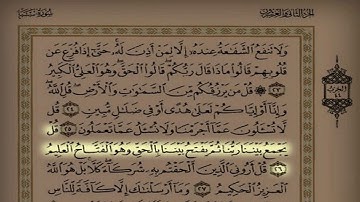 سورة سبإ
الجزء الثاني والعشرون
وَلَا تَنفَعُ الشَّفَاعَةُ عِندَهُ إِلَّا لِمَنْ أَذِنَ لَهُ حَتَّىٰ إِذَا فُزِّعَ عَن
قُلُوبِهِمْ قَالُوا مَاذَا قَالَ رَبُّكُمْ قَالُوا الْحَقَّ وَهُوَ الْعَلِيُّ الْكَبِيرُ
٢٣ قُلْ مَن يَرْزُقُكُم مِّنَ السَّمَاوَاتِ وَالْأَرْضِ قُلِ اللَّهُ
وَإِنَّا أَوْ إِيَّاكُمْ لَعَلَىٰ هُدًى أَوْ فِي ضَلَالٍ مُّبِينٍ ٢٤ قُل
لَّا تُسْأَلُونَ عَمَّا أَجْرَمْنَا وَلَا نُسْأَلُ عَمَّا تَعْمَلُونَ ٢٥ قُلْ
يَجْمَعُ بَيْنَنَا رَبُّنَا ثُمَّ يَفْتَحُ بَيْنَنَا بِالْحَقِّ وَهُوَ الْفَتَّاحُ الْعَلِيمُ
٢٦ قُلْ أَرُونِيَ الَّذِينَ أَلْحَقْتُم بِهِ شُرَكَاءَ كَلَّا بَلْ هُوَ اللَّهُ
الْعَزِيزُ الْحَكِيمُ ٢٧ وَمَا أَرْسَلْنَاكَ إِلَّا كَافَّةً لِّلنَّاسِ
الحزب
٤٤